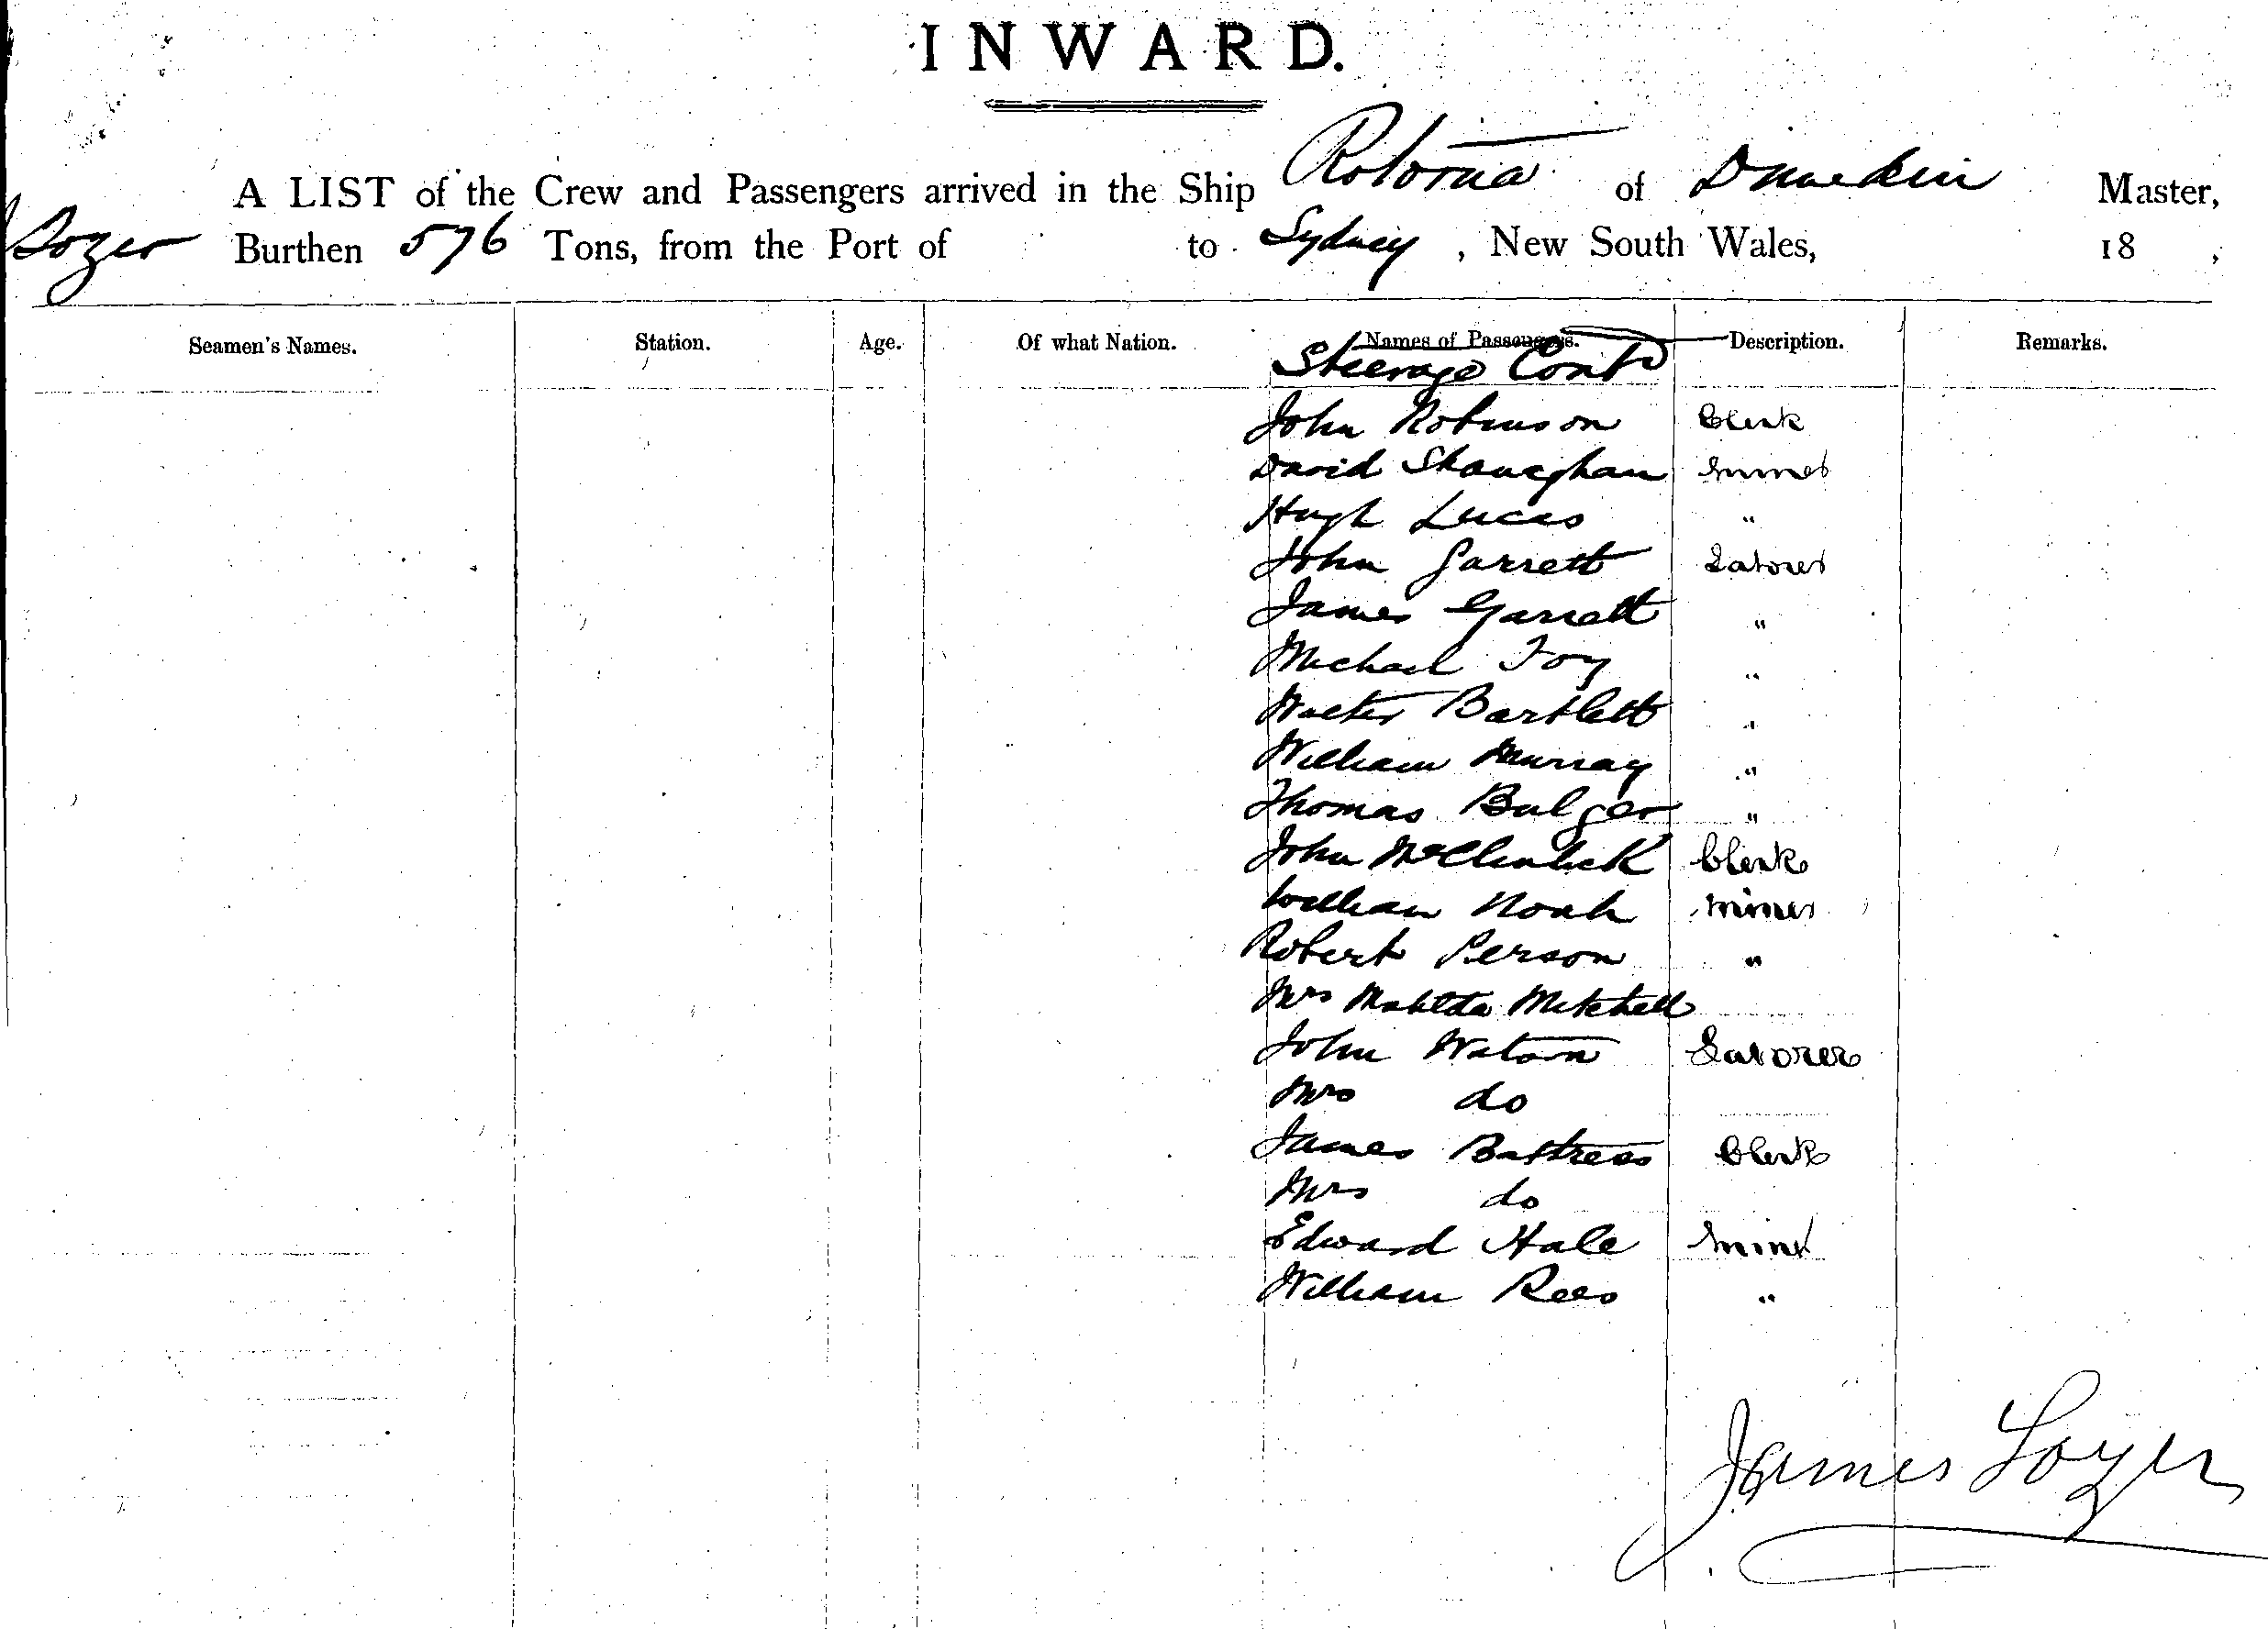 INWARD.
A LIST of the Crew and Passengers arrived in the Ship Rotorua of Dunedin Master,
Burthen 576 Tons, from the Port of to Sydney, New South Wales, 18 ,
Seamen's Names. Station. Age. Of what Nation. Names of Passengers. Description. Remarks.
Steerage Contd
John Robinson Clerk
David Shaneghan miner
Hugh Lucas "
John Garrett Laborer
James Garrett "
Michael Foy "
Walter Bartlett "
William Murray "
Thomas Bulger "
John McClintick Clerk
William Noah miner
Robert Person "
Mrs Matilda Mitchell
John Watson Laborer
Mrs do
James Buttress Clerk
Mrs do
Edward Hale miner
William Rees "
James